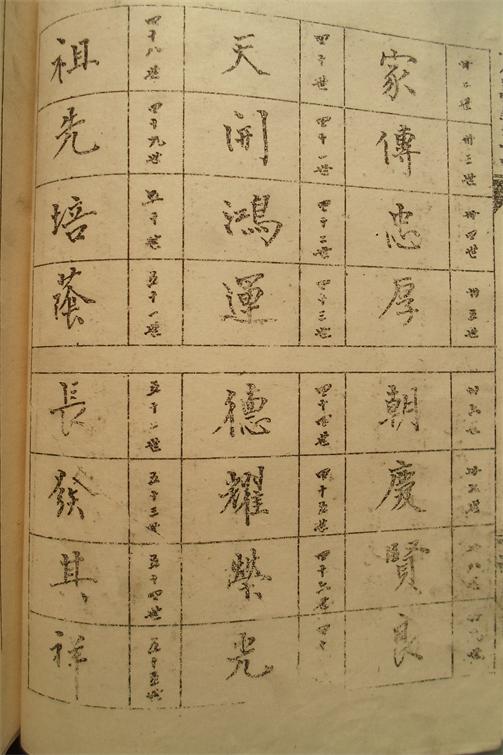 卅二世 卅三世 卅四世 卅五世
家傳忠厚朝慶賢良
四十世 四十一世 四十二世 四十三世 四十四世 四十五世 四十六世 四十
天開鴻運德耀榮光
四十八世 四十九世 五十世 五十一世 五十二世 五十三世 五十四世 五十五世
祖先培蔭長發其祥